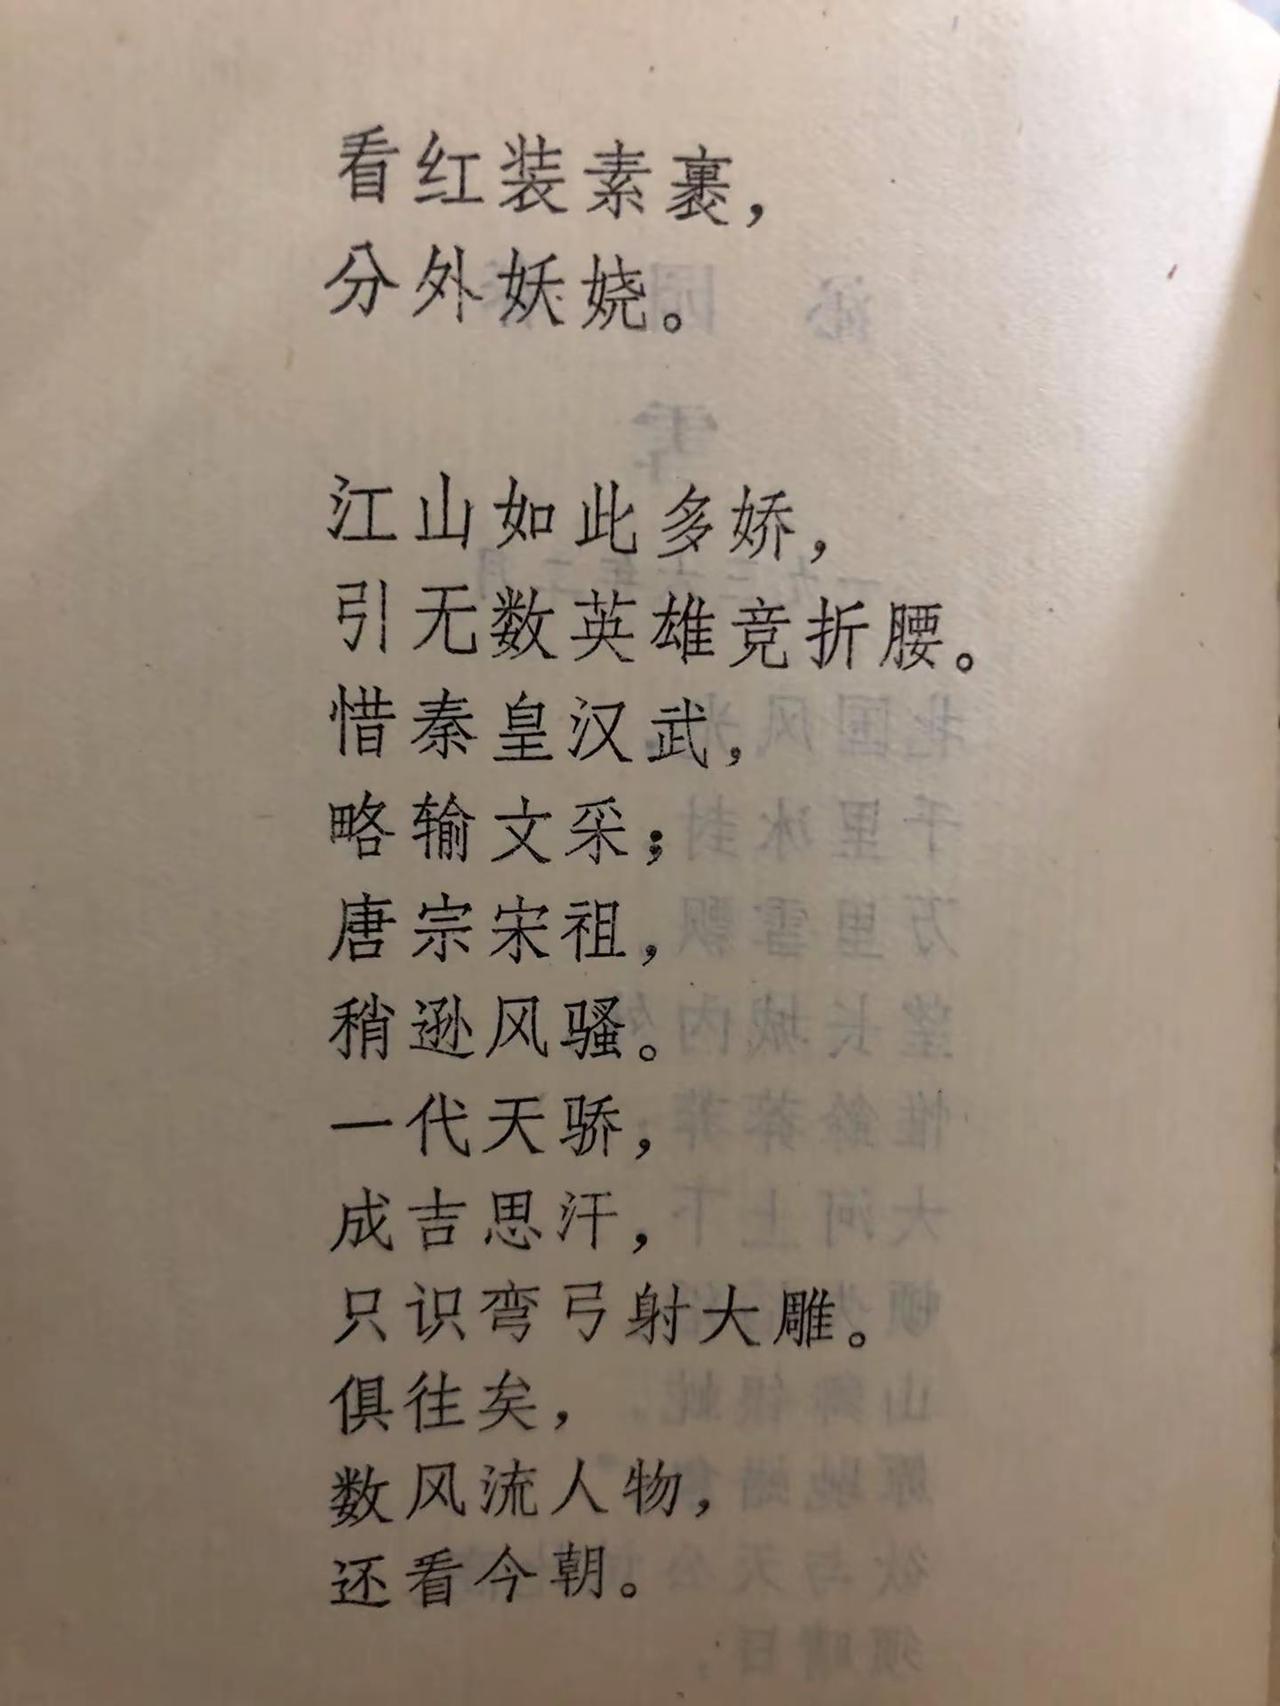 看红装素裹，
分外妖娆。
江山如此多娇，
引无数英雄竞折腰。
惜秦皇汉武，
略输文采；
唐宗宋祖，
稍逊风骚。
一代天骄，
成吉思汗，
只识弯弓射大雕。
俱往矣，
数风流人物，
还看今朝。